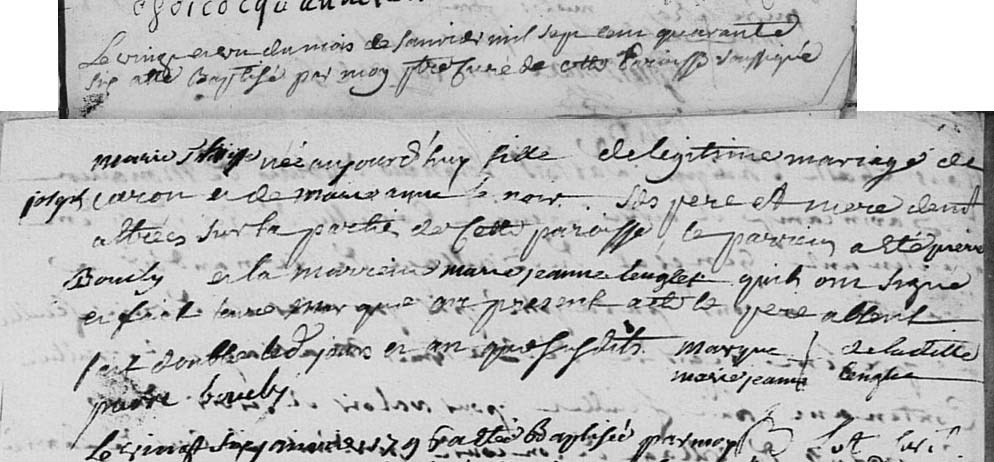 Le vingt et un du mois de Janvier mil sept cent quarante
six a été Baptisé par moy ptre curé de cette Paroisse soussigné
marie née aujourd'huy fille de legitime mariage de
joseph caron et de marie anne le noir. Ses pere et mere dem
sur la partie de cette paroisse, le parrein a été pierre
Bouly et la marreine marie jeanne lenglet quils ont signé
et fait leure marque au présent acte le pere absent
fait double led jours et an que susdits marque de laditte
marie jeanne lenglet
pierre bouly
Le vingt six janvier 1746 a été Baptisée par moy